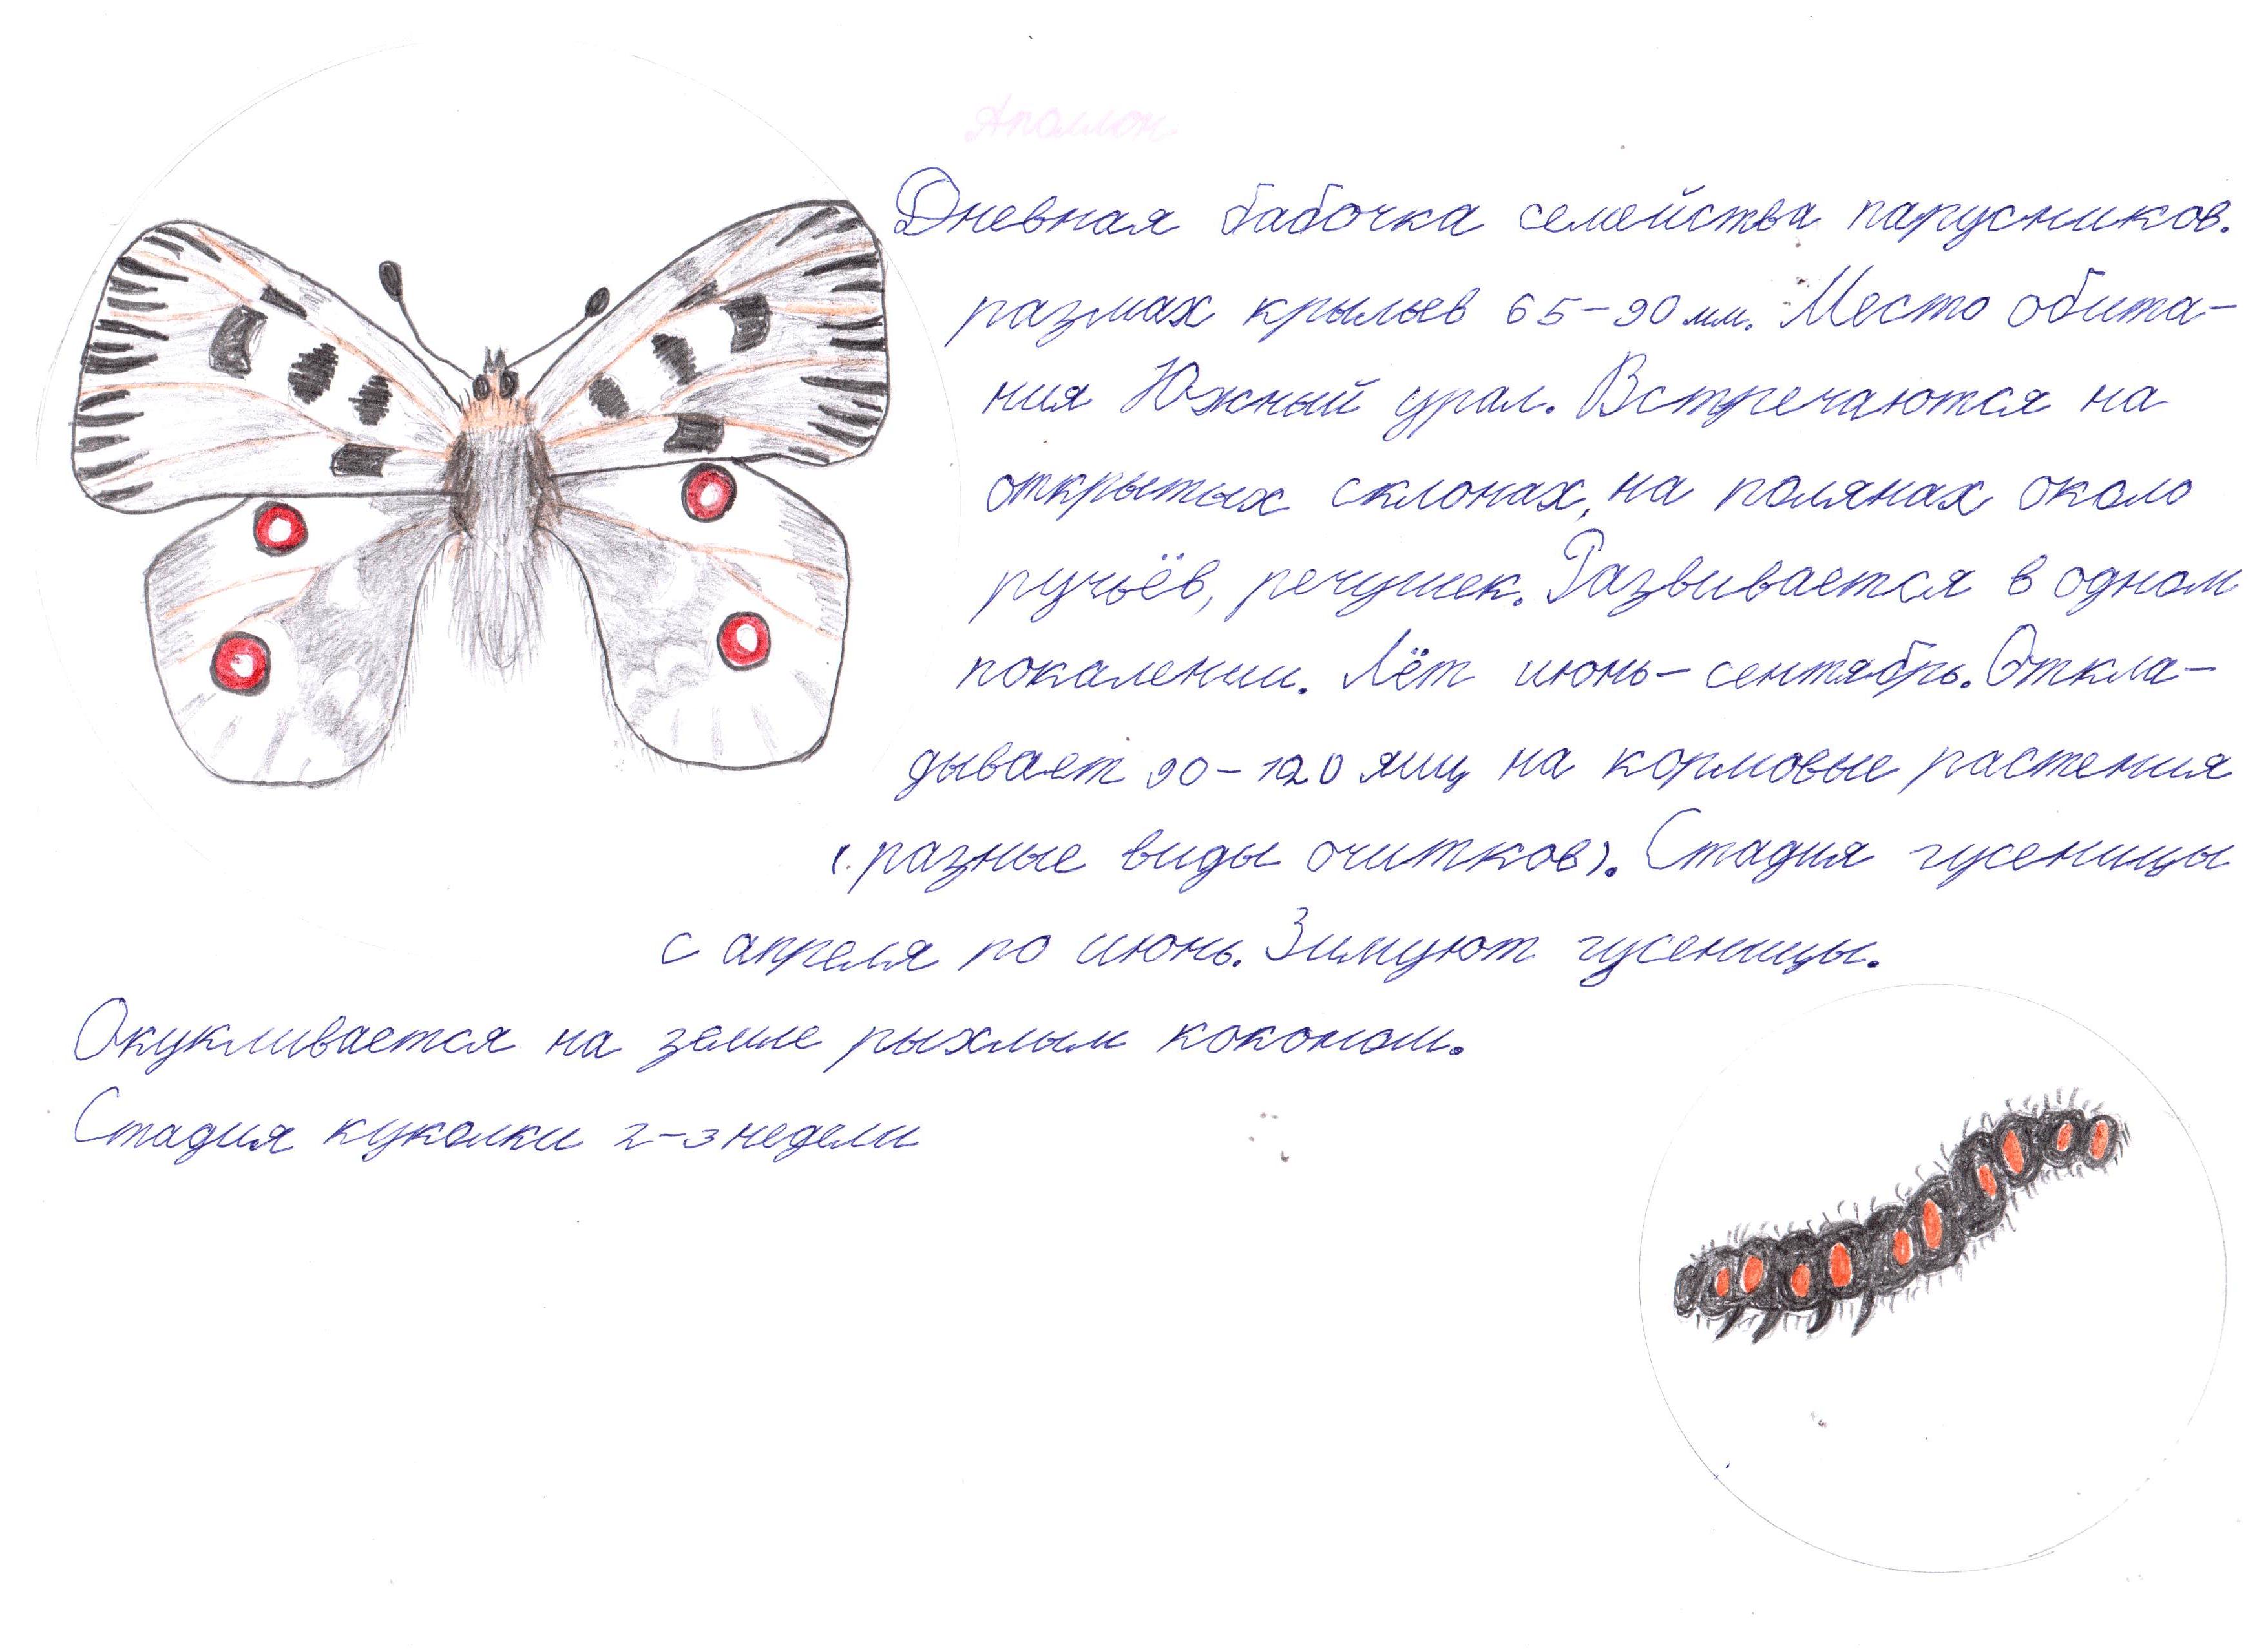 Аполлон
Дневная бабочка семейства парусников.
размах крыльев 65-90 мм. Место обита-
ния Южный урал. Встречаются на
открытых склонах, на полянах около
ручьёв, речушек. Развивается в одном
покалении. Лёт июнь-сентябрь. Откла-
дывает 90-120 яиц на кормовые растения
(разные виды очитков). Стадия гусеницы
с апреля по июнь. Зимуют гусеницы.
Окукливается на земле рыхлым коконом.
Стадия куколки 2-3 недели